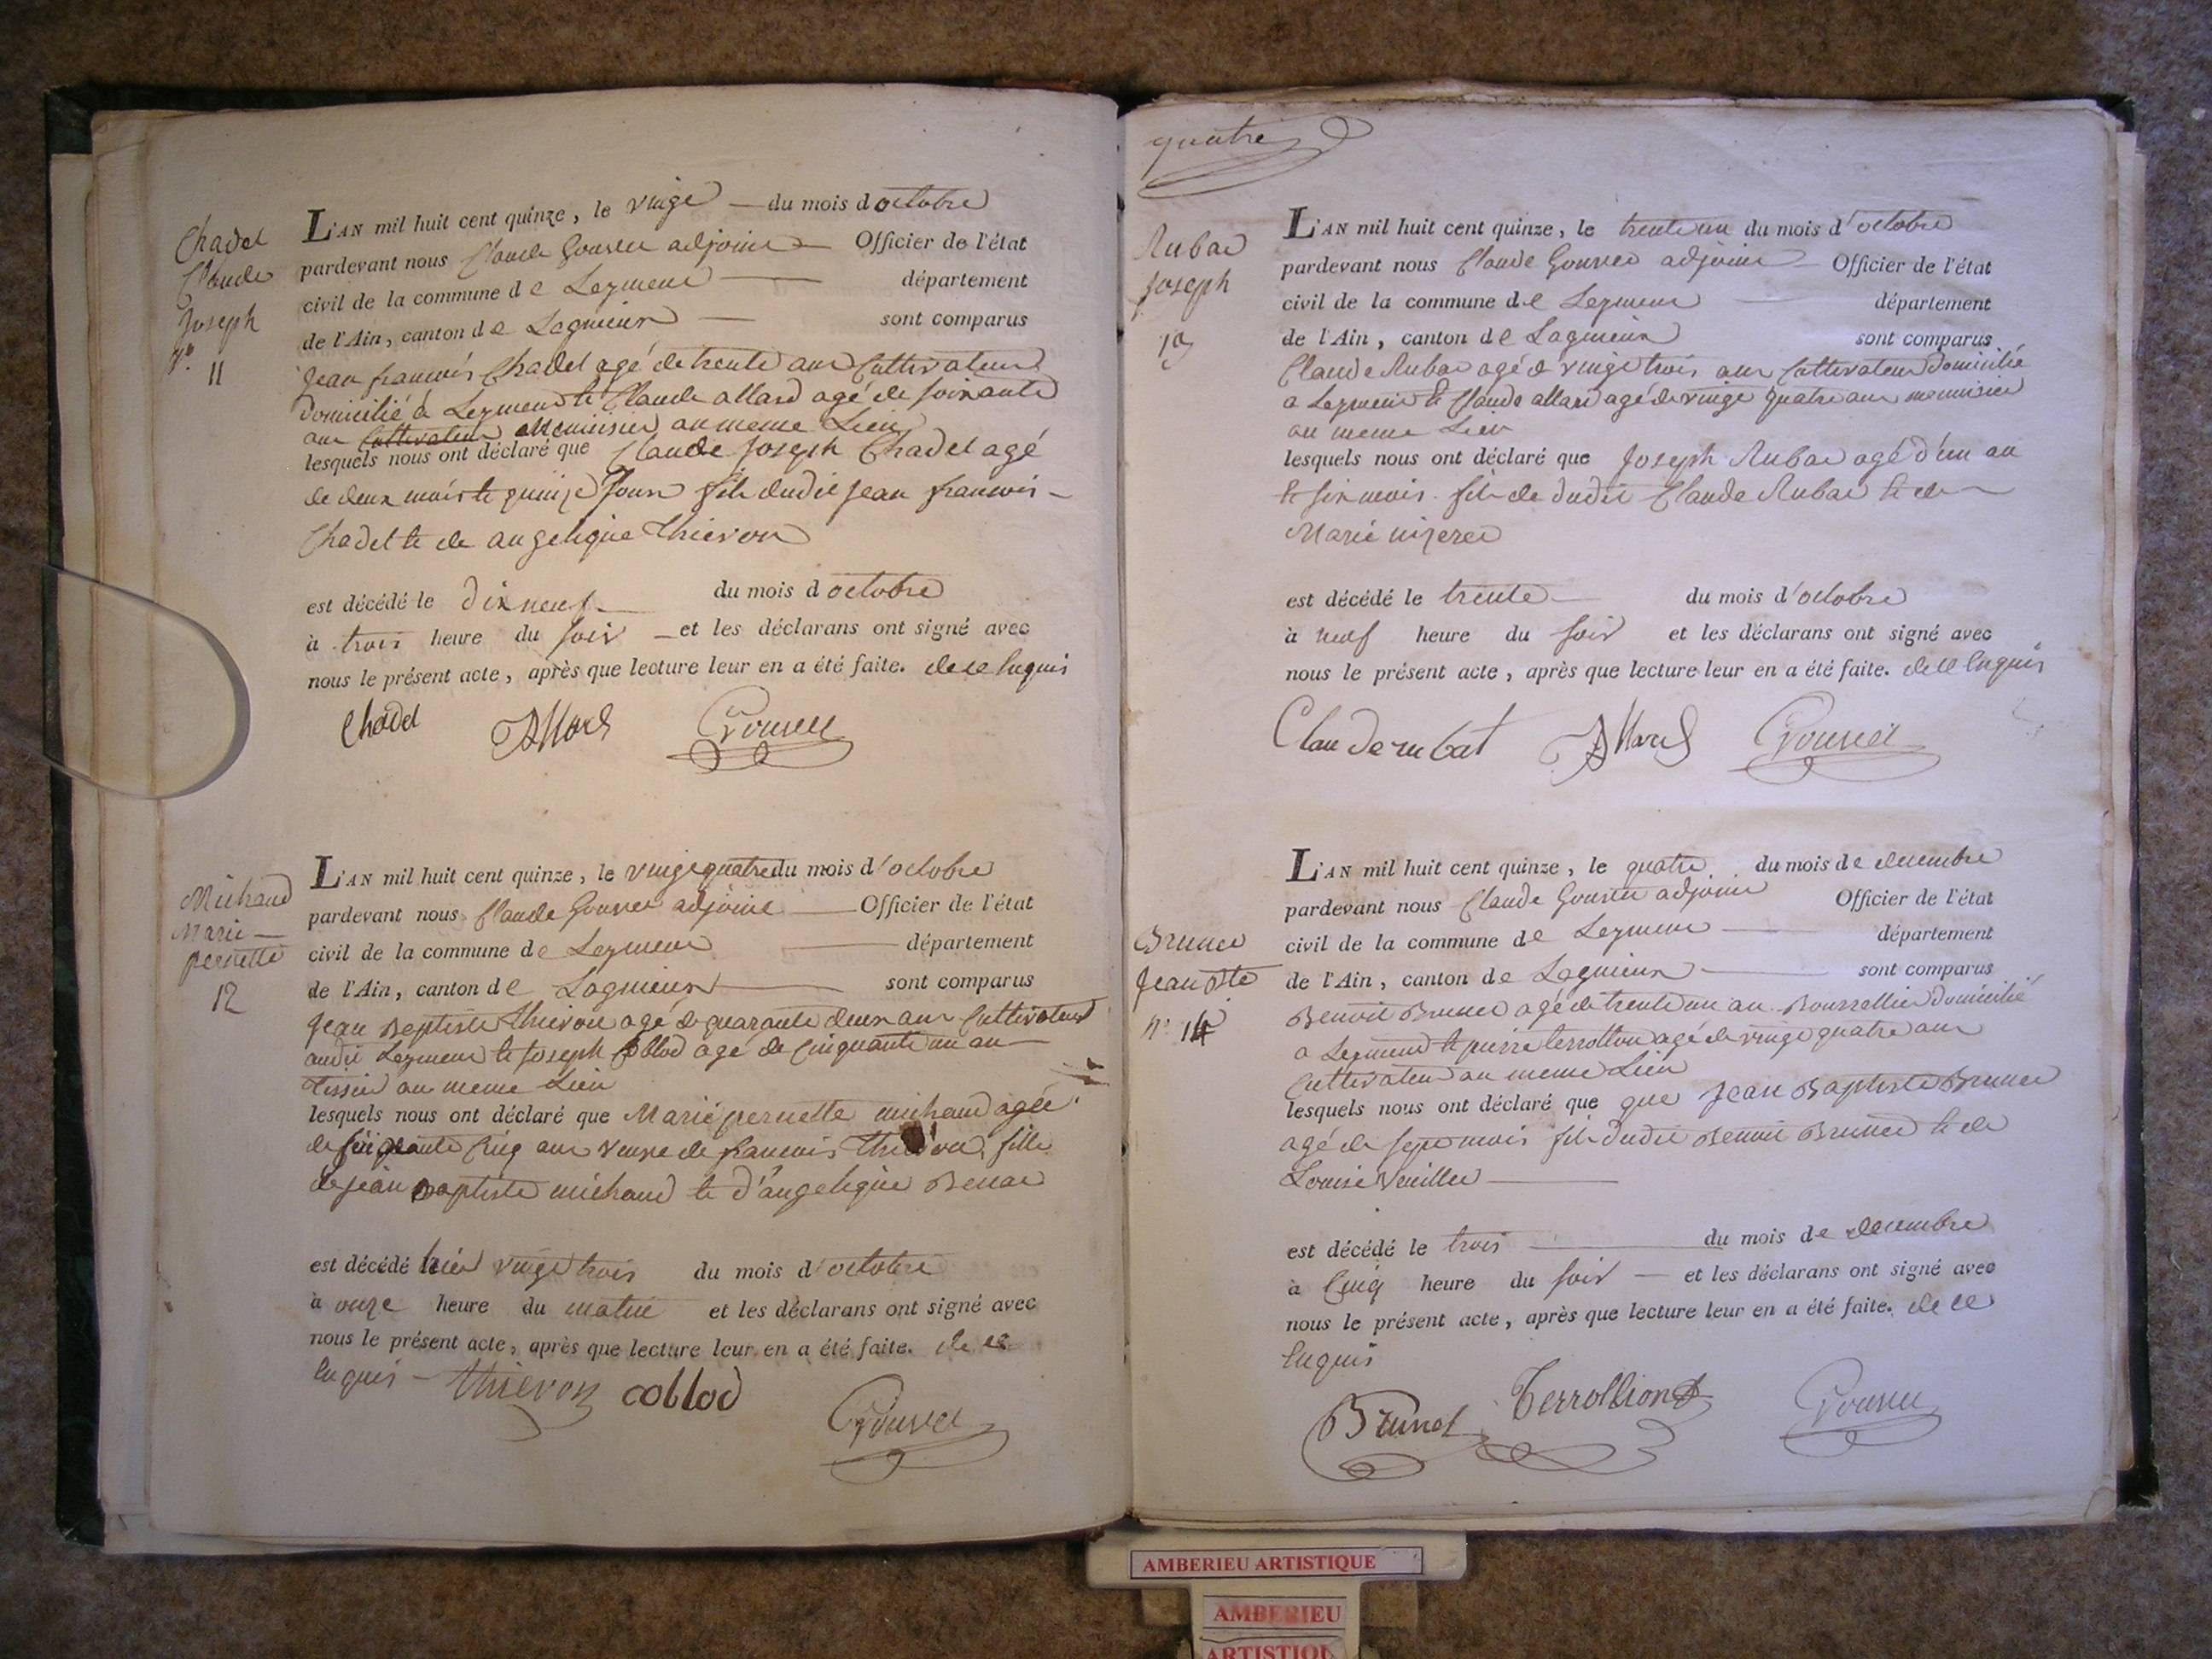 Chadel
Claude
Joseph
N°. 11
L'AN mil huit cent quinze, le vingt — du mois d octobre
pardevant nous Claude Gouvet adjoint — Officier de l'état
civil de la commune de Leyment — département
de l'Ain, canton de Lagnieux — sont comparus
jean francois Chadel agé de trente ans Cultivateur
domicilié à Leyment et Claude allard agé de soixante
ans Cultivateur Menuisier au meme Lieu
lesquels nous ont déclaré que Claude Joseph Chadel agé
de deux mois et quinze jours fils dudit jean francois -
Chadel et de angelique thievon
est décédé le dix neuf — du mois d octobre
à trois heure du soir — et les déclarans ont signé avec
nous le présent acte, après que lecture leur en a été faite. de ce Enquis
Chadel Allard Gouvet
Michaud
Marie —
pernette
12
L'AN mil huit cent quinze, le vingt quatre du mois d'octobre
pardevant nous Claude Gouvet adjoint — Officier de l'état
civil de la commune de Leyment — département
de l'Ain, canton de Lagnieux — sont comparus
jean Baptiste thievon agé de quarante deux ans Cultivateur
audit Leyment et joseph Coblod agé de Cinquante un an —
tissier au meme Lieu
lesquels nous ont déclaré que Marie pernette michaud agée
de soixante Cinq ans veuve de francois thievon fille
de jean Baptiste michaud et d'angelique
est décédé hier vingt trois du mois d'octobre
à onze heure du matin et les déclarans ont signé avec
nous le présent acte, après que lecture leur en a été faite. de ce
Enquis — thievon coblod
Gouvet
quatre
Rubat
joseph
13
L'AN mil huit cent quinze, le trente un du mois d'octobre
pardevant nous Claude Gouvet adjoint — Officier de l'état
civil de la commune de Leyment — département
de l'Ain, canton de Lagnieux sont comparus
Claude Rubat agé de vingt trois ans Cultivateur domicilié
a Leyment et Claude allard agé de vingt quatre ans menuisier
au meme Lieu
lesquels nous ont déclaré que Joseph Rubat agé d'un an
et six mois fils de dudit Claude Rubat et de —
Marie
est décédé le trente — du mois d'octobre
à neuf heure du soir et les déclarans ont signé avec
nous le présent acte, après que lecture leur en a été faite. de ce Enquis
Claude rubat Allard Gouvet
Brunet
Jean Bte
n° 14
L'AN mil huit cent quinze, le quatre du mois de decembre
pardevant nous Claude Gouvet adjoint Officier de l'état
civil de la commune de Leyment — département
de l'Ain, canton de Lagnieux — sont comparus
Benoit Brunet agé de trente un an Bourrellier domicilié
a Leyment et pierre terrollion agé de vingt quatre ans
Cultivateur au meme Lieu
lesquels nous ont déclaré que que Jean Baptiste Brunet
agé de sept mois fils dudit Benoit Brunet et de
Louise —
est décédé le trois — du mois de decembre
à Cinq heure du soir — et les déclarans ont signé avec
nous le présent acte, après que lecture leur en a été faite. de ce
Enquis
Brunet Terrollion Gouvet
AMBERIEU ARTISTIQUE
AMBERIEU
ARTISTIQU